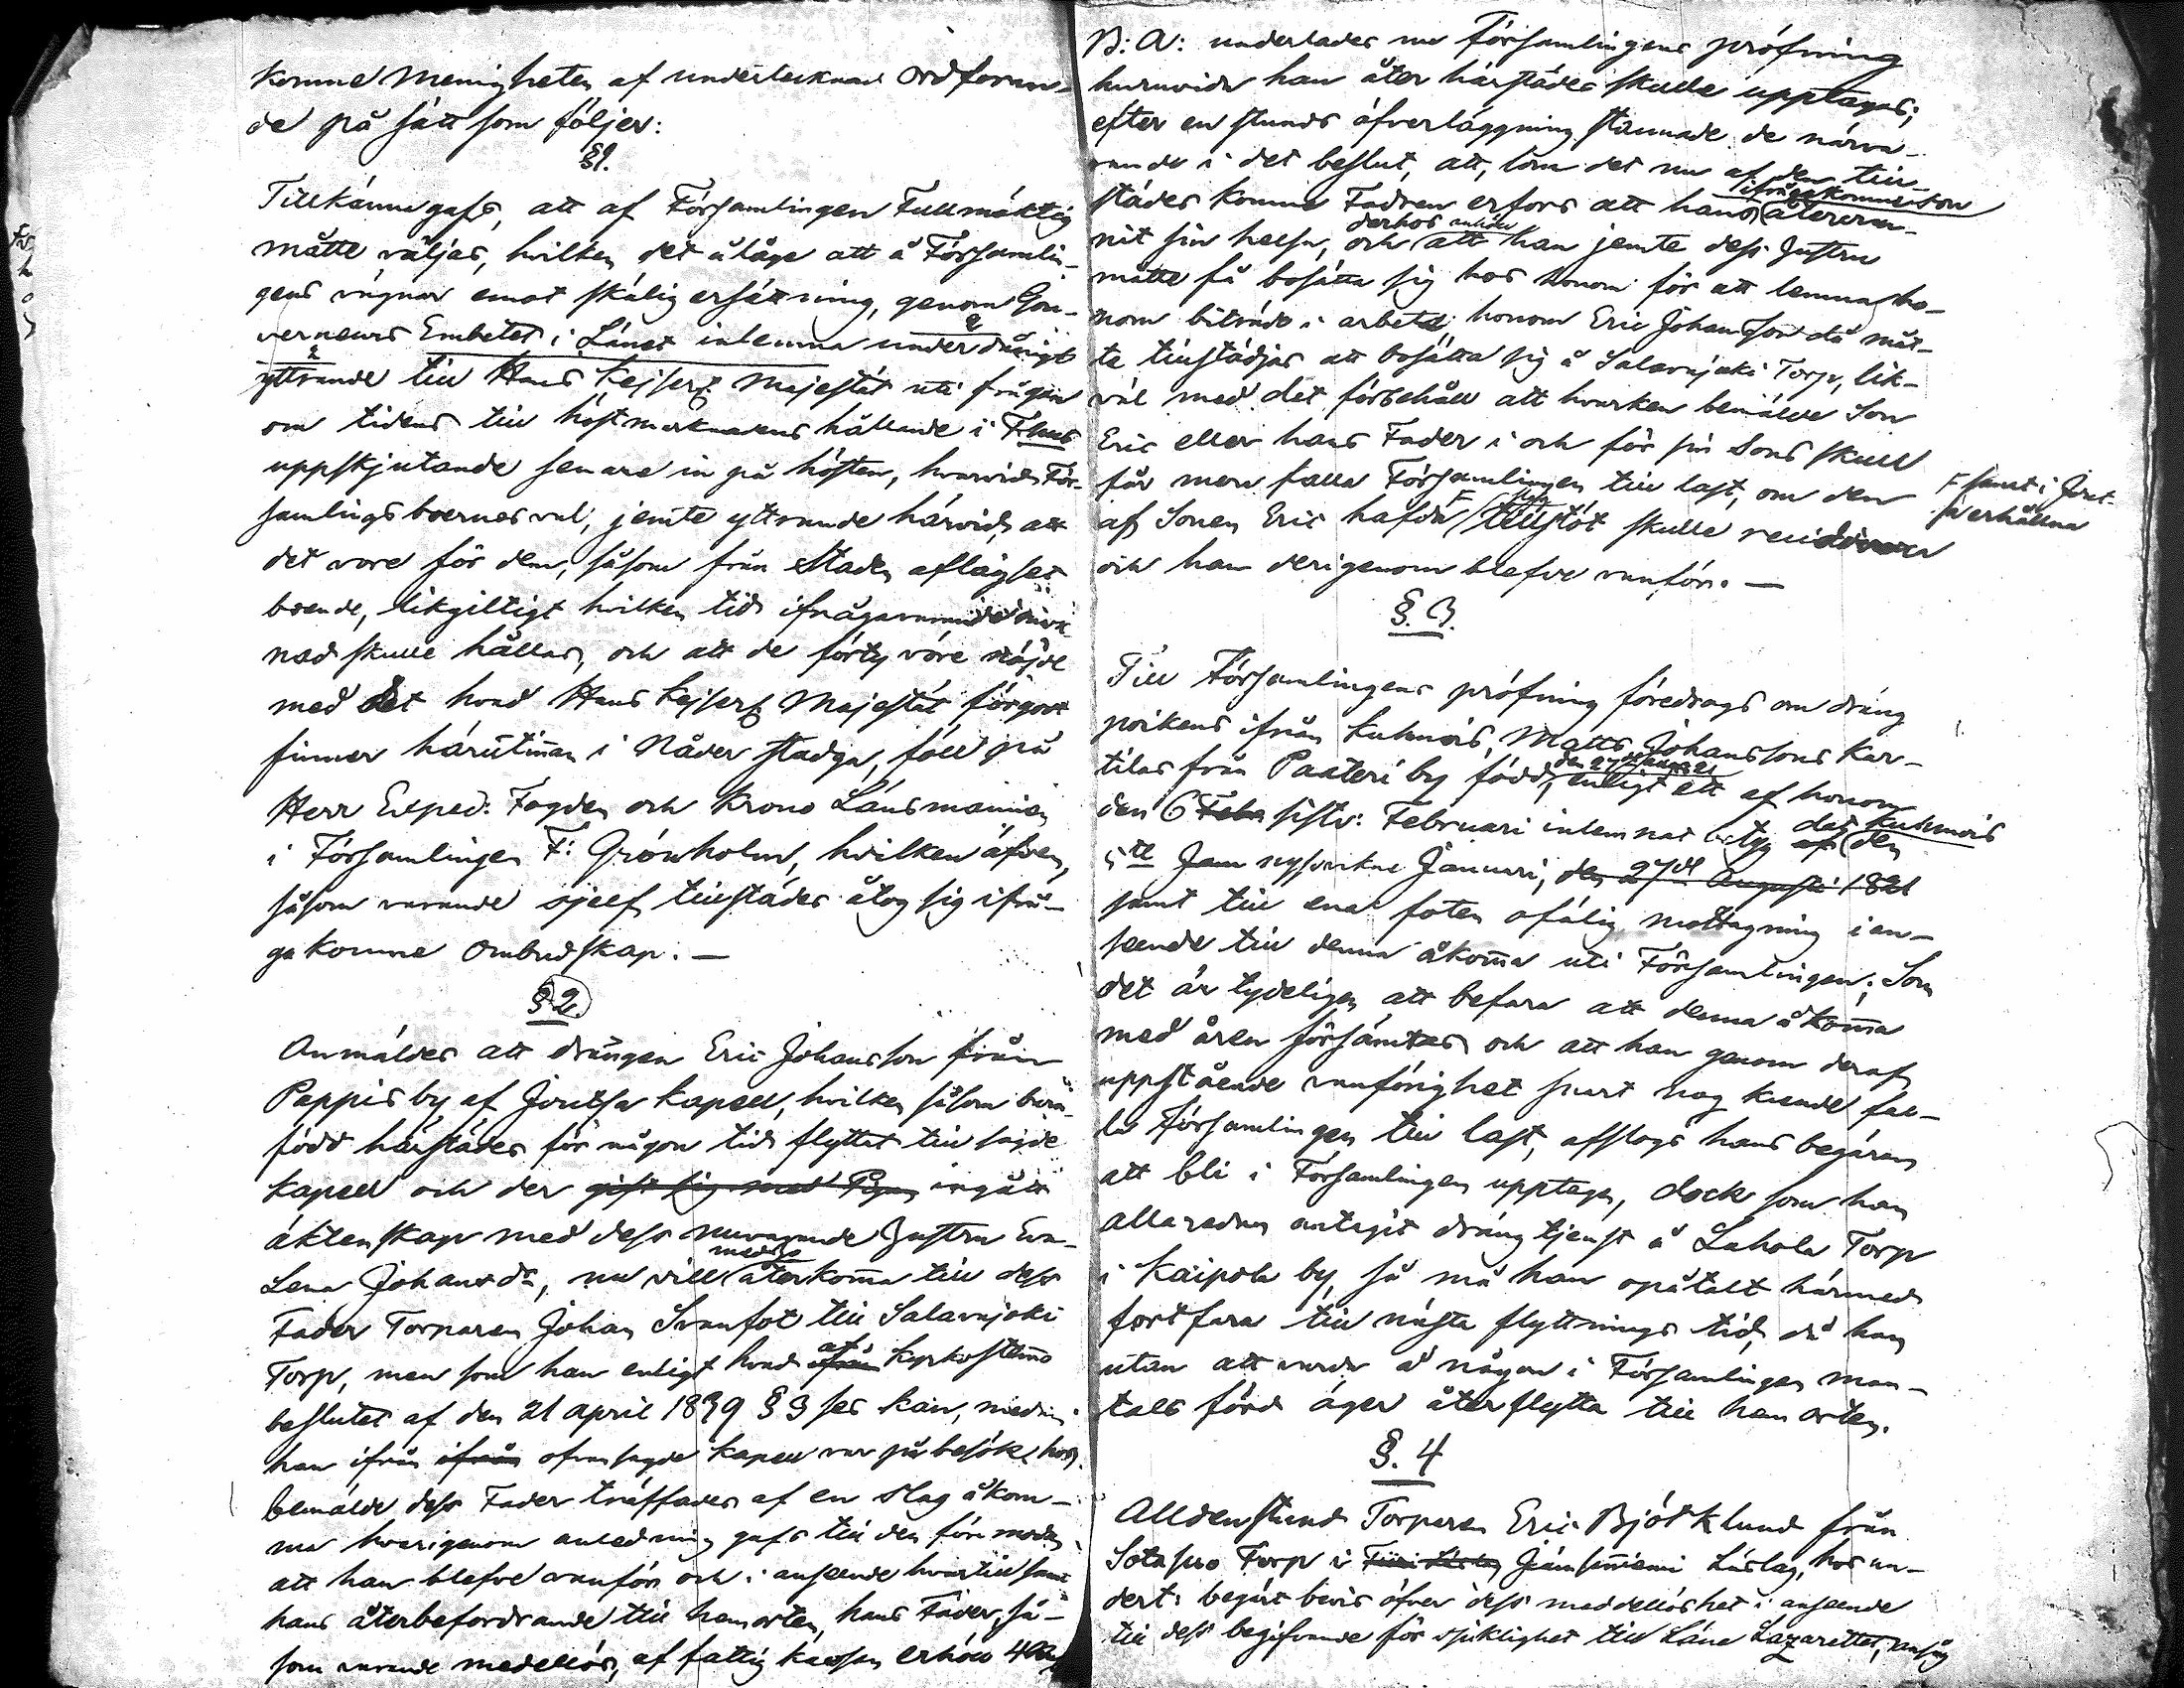 komne Menigheten af undertecknad Ordföran-
de på sätt som följer:
§1.
Tillkännegafs, att af Församlingen Fullmäktig
måtte väljas, hvilken det ålåge att å Församlin-
gens vägnar emot skälig ersättning, genom Gou-
verneurs Embetet i Länet inlemna underdånigt
yttrande till Hans Kejserl Majestät uti frågan
om tidens till höstmarknadens hållande i T:hus
uppskjutande senare in på hösten, hvarvid För-
samlingsboernes val, jemte yttrande härvid, att
det vore för dem, såsom från Staden aflägset
boende, likgiltigt hvilken tid ifrågavarande mark-
nad skulle hållas, och att de förty vore nöjde
med det hvad Hans Kejserl Majestät förgodt
finner härutinnan i Nåder stadga, föll på
Herr Exped: Fogden och Krono Länsmannen
i Församlingen F: Grönholm, hvilken äfven,
såsom varande sjelf tillstädes åtog sig ifrå-
ga komne ombudskap. —
§ 2
Anmäldes att drängen Eric Johansson från
Pappis by af Joutsa Kapell, hvilken såsom barn-
född härstädes för någon tid flyttat till sagde
Kapell och der gift sig med Pigan ingått
äktenskap med dess nuvarande Hustru Eva
Lena Johansdr, nu vill med återkomma till dess
Fader Torparen Johan Svanfot till Salavajoki
Torp, men som han enligt hvad af ifrån Kyrkostemmo
beslutet af den 21 April 1839 § 3 ses kan, medan
han ifrån ifrån ofvansagde Kapell var på besök hos
bemälde dess Fader träffades af en slag åkom-
ma hvarigenom anledning gafs till den förmodan
att han blefve vanför och i anseende hvartill samt
hans återbefordrande till hemorten, hans Fader, så-
som varande medellös, af fattig kassan erhöll 4
B: A: underlades nu Församlingens pröfning
huruvida han åter härstädes skulle upptagas;
efter en stunds öfverläggning stannade de närva-
rande i det beslut, att, som det nu af den till-
städes komne Fadren erfors att hans ifrågakomne son återvun-
nit sin helsa, och derhos anhöll att han jemte dess Hustru
måtte få bosätta sig hos honom för att lemna ho-
nom biträde i arbete: honom Eric Johansson då måt-
te tillstädjas att bosätta sig å Salavajoki Torp, lik-
väl med det förbehåll att hvarken bemälde Son
Eric eller hans Fader i och för sin Sons skull
får mera falla Församlingen till last, om den
af Sonen Eric hafda F slag tillstöt skulle recidivera
F samt i Jout-
sa erhållna
och han derigenom blefve vanför. —
§. 3.
Till Församlingens pröfning föredrogs om dräng
poikens ifrån Kuhmois, Matts Johanssons Kar-
tilas från Paateri by född, den 27de Augusti 21 enligt ett af honom
den 6 Febr sistl: Februari inlemnat betyg af det Kuhmois den
5te Janu nyssvikne Januari, den 27de Augusti 1821
samt till ena foten ofälig mottagning i an-
seende till denna åkomma uti Församlingen; Som
det är tydeligen att befara att denna åkomma
med åren försämras och att han genom deraf
uppstående vanförighet snart nog kunde fal-
la Församlingen till last, afslogs hans begäran
att bli i Församlingen upptagen, dock som han
allaredan antagit dräng tjenst å Lahola Torp
i Kaipola by, så må han opåtalt härmed
fortfara till nästa flyttnings tid, då han
utan att varda å någon i Församlingen man-
tals förd äger återflytta till hemorten.
§. 4
Alldenstund Torparen Eric Björklund från
Sotasuo Torp i Jämsänniemi Länslag, hos un-
dert: begärt bevis öfver dess medellöshet i anseende
till dess begifvande för sjuklighet till Läne Lazarettet, ansåg